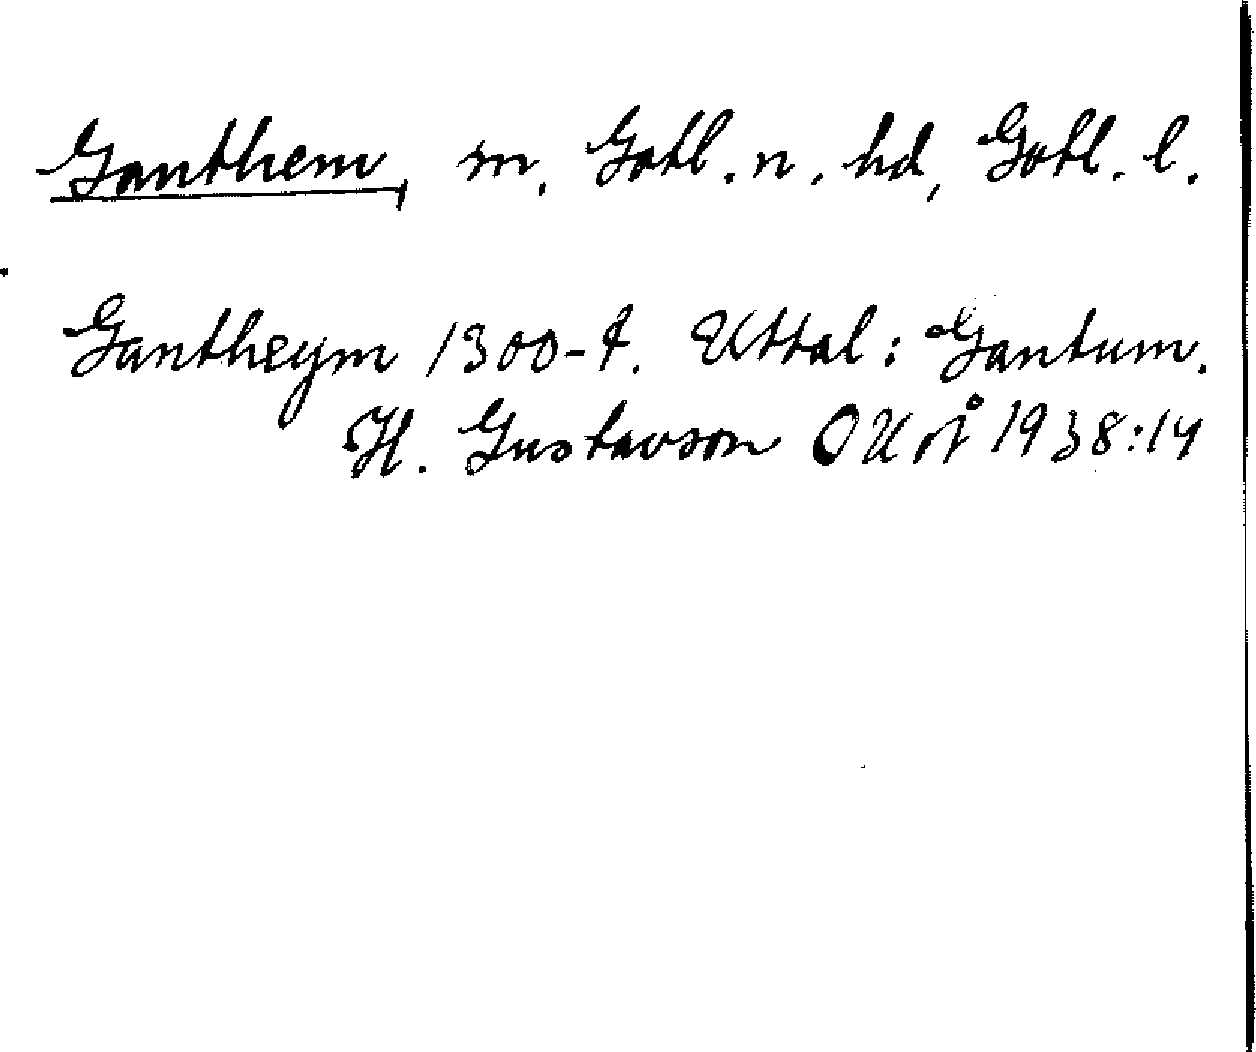 Ganthem, sn, Gotl. n. hd, Gotl. l.
Gantheym 1300-t. Uttal: Gantum.
H. Gustavson OUÅ 1938:14